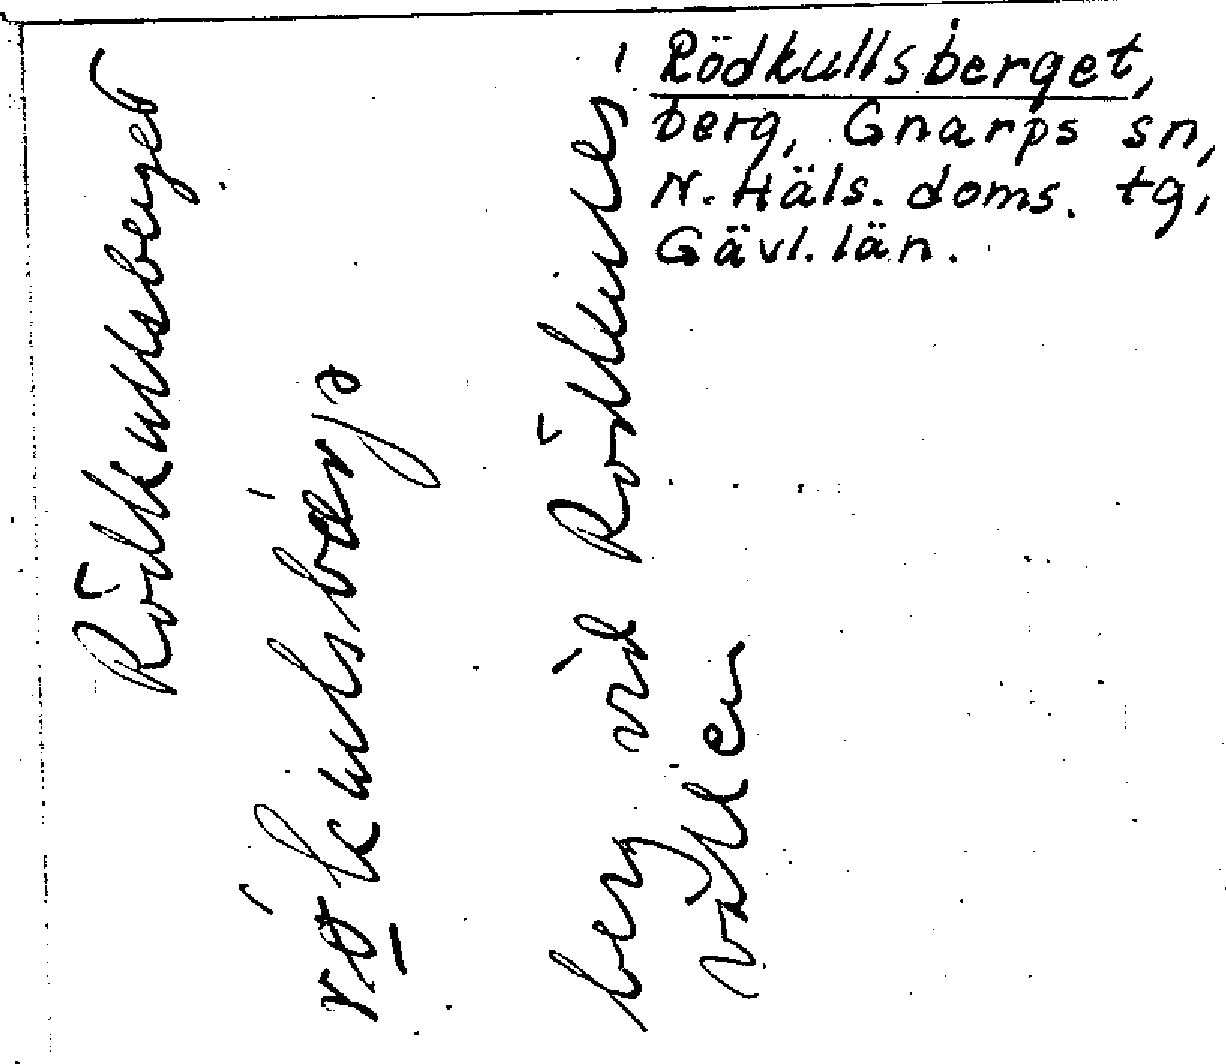 Rödkullsberget,
berg, Gnarps sn,
N. Häls. doms. tg,
Gävl. län.
Rödkullsberget
berg vid Rödkulles
vallen